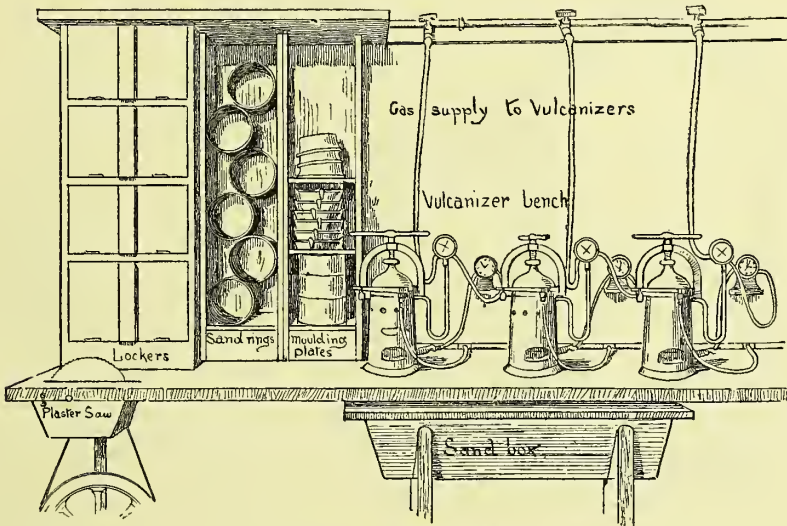 Gas supply to Vulcanizers
Vulcanizer bench
Lockers
Sand rings
Moulding
plates
Plaster Saw
Sand box.